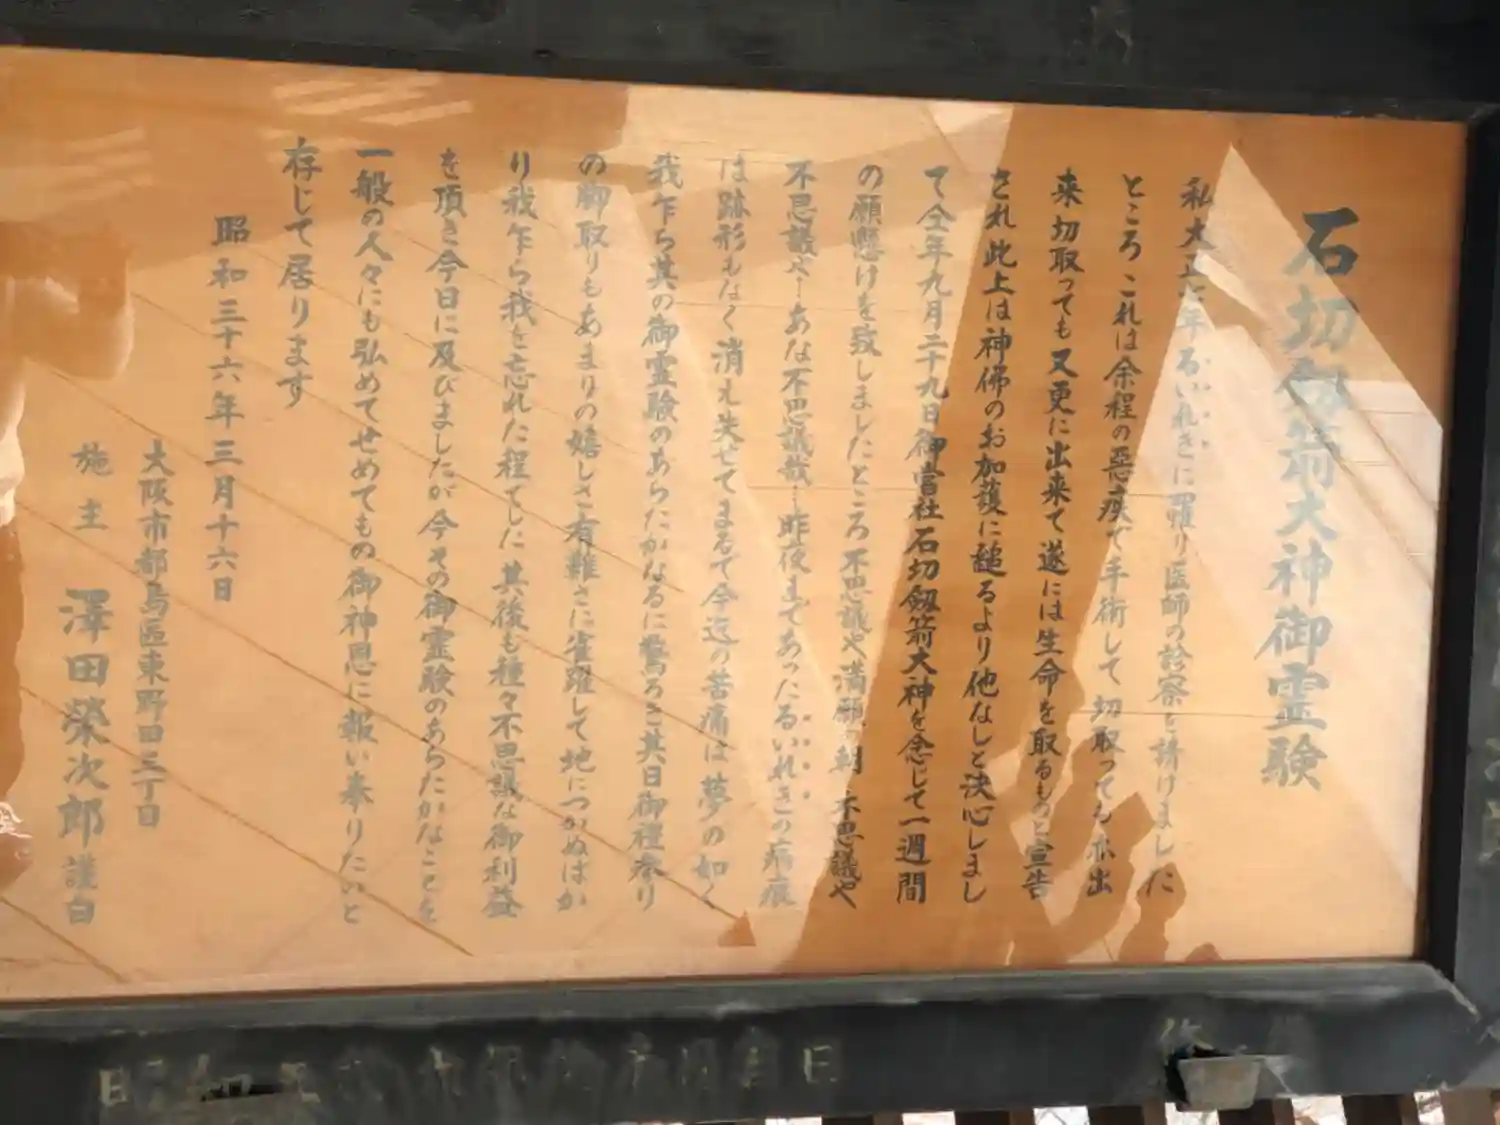 石切劔箭大神御霊験
私大正七年るいれきに罹り医師の診察を請けました
ところこれは余程の惡疾で手術して切取っても亦出
来切取っても又更に出来て遂には生命を取るものと宣告
され此上は神佛のお加護に縋るより他なしと決心しまし
て仝年九月二十九日御当社石切劔箭大神を念じて一週間
の願懸けを致しましたところ不思議や満願の朝不思議や
不思議やあな不思議哉昨夜まであったるいれきの病痕
は跡形もなく消え失せてまるで今迄の苦痛は夢の如く
我乍ら其の御霊験のあらたかなるに驚ろき其日御禮参り
の御取りもあまりの嬉しさ有難さに雀躍して地につかぬばか
り我乍ら我を忘れた程でした其後も種々不思議な御利益
を頂き今日に及びましたが今その御霊験のあらたかなことを
一般の人々にも弘めてせめてもの御神恩に報い奉りたいと
存じて居ります
昭和三十六年三月十六日
大阪市都島區東野田三丁目
施主 澤田榮次郎謹白